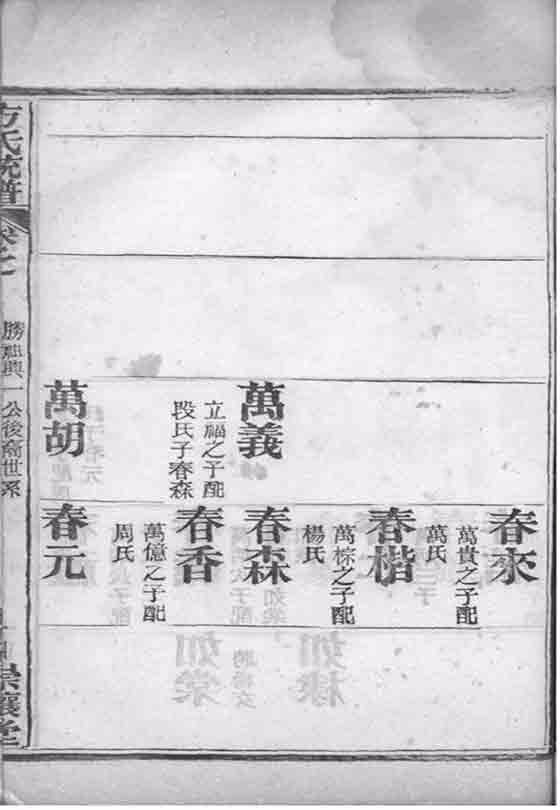 萬義
立福之子配
段氏子春森
萬胡
春來
萬貴之子配
萬氏
春楷
萬棕之子配
楊氏
春森
春香
萬億之子配
周氏
春元
方氏統譜
公後裔世系
崇讓堂